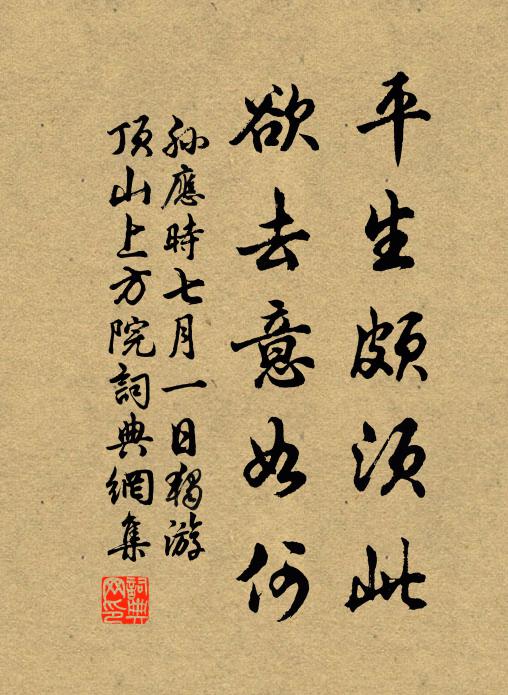 平生頗須此
欲去意如何
孫應時七月一日獨游
頂山上方院詞典網集
詞典网印